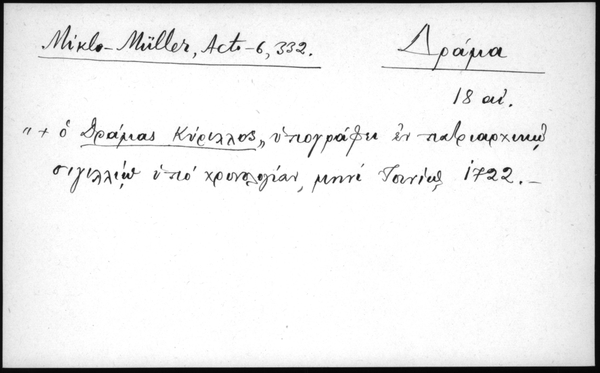 Miklo-Müller, Acta-6, 332.
Δράμα
18 αἰ.
"+ ὁ Δράμας Κύριλλος„ ὑπογράφει ἐν πατριαρχικῷ
σιγιλλίῳ ὑπό χρονολογίαν, μηνί Ἰουνίῳ 1722.–